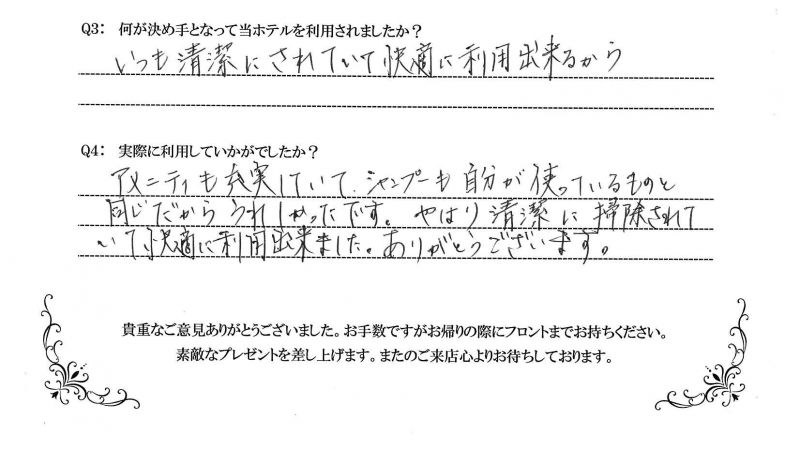 Q3: 何が決め手となって当ホテルを利用されましたか？
いつも清潔にされていて快適に利用出来るから
Q4: 実際に利用していかがでしたか？
アメニティも充実していて、シャンプーも自分が使っているものと
同じだからうれしかったです。やはり清潔に掃除されて
いて快適に利用出来ました。ありがとうございます。
貴重なご意見ありがとうございました。お手数ですがお帰りの際にフロントまでお持ちください。
素敵なプレゼントを差し上げます。またのご来店心よりお待ちしております。